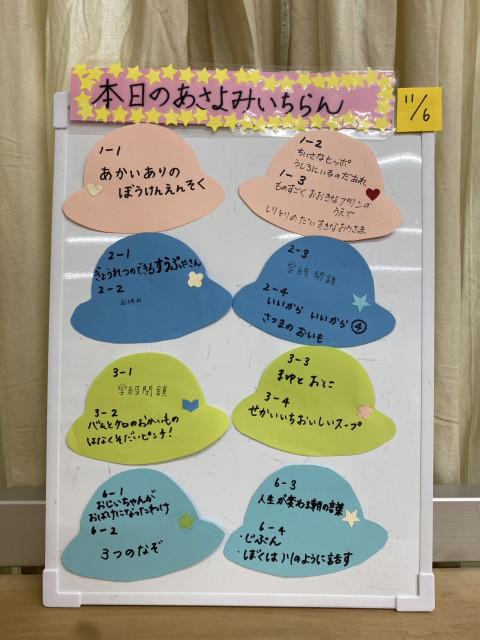 本日のあさよみいちらん
11/6
1-1
あかいありの
ぼうけんえんそく
1-2
ちいさなヒッポ
うしろにいるのだあれ
1-3
ものすごくおおきなプリンの
うえで
しりとりのだいすきなおうさま
2-1
ぎょうれつのできるすうぷやさん
2-2
2-3
学級閉鎖
2-4
いいから いいから④
さつまのおいも
3-1
学級閉鎖
3-2
バムとケロのおかいもの
はなくそだいピンチ!
3-3
まゆとおに
3-4
せかいいちおいしいスープ
6-1
おじいちゃんが
おばけになったわけ
6-2
3つのなぞ
6-3
人生が変わる朝の言葉
6-4
・じぶん
・ぼくは川のように話す